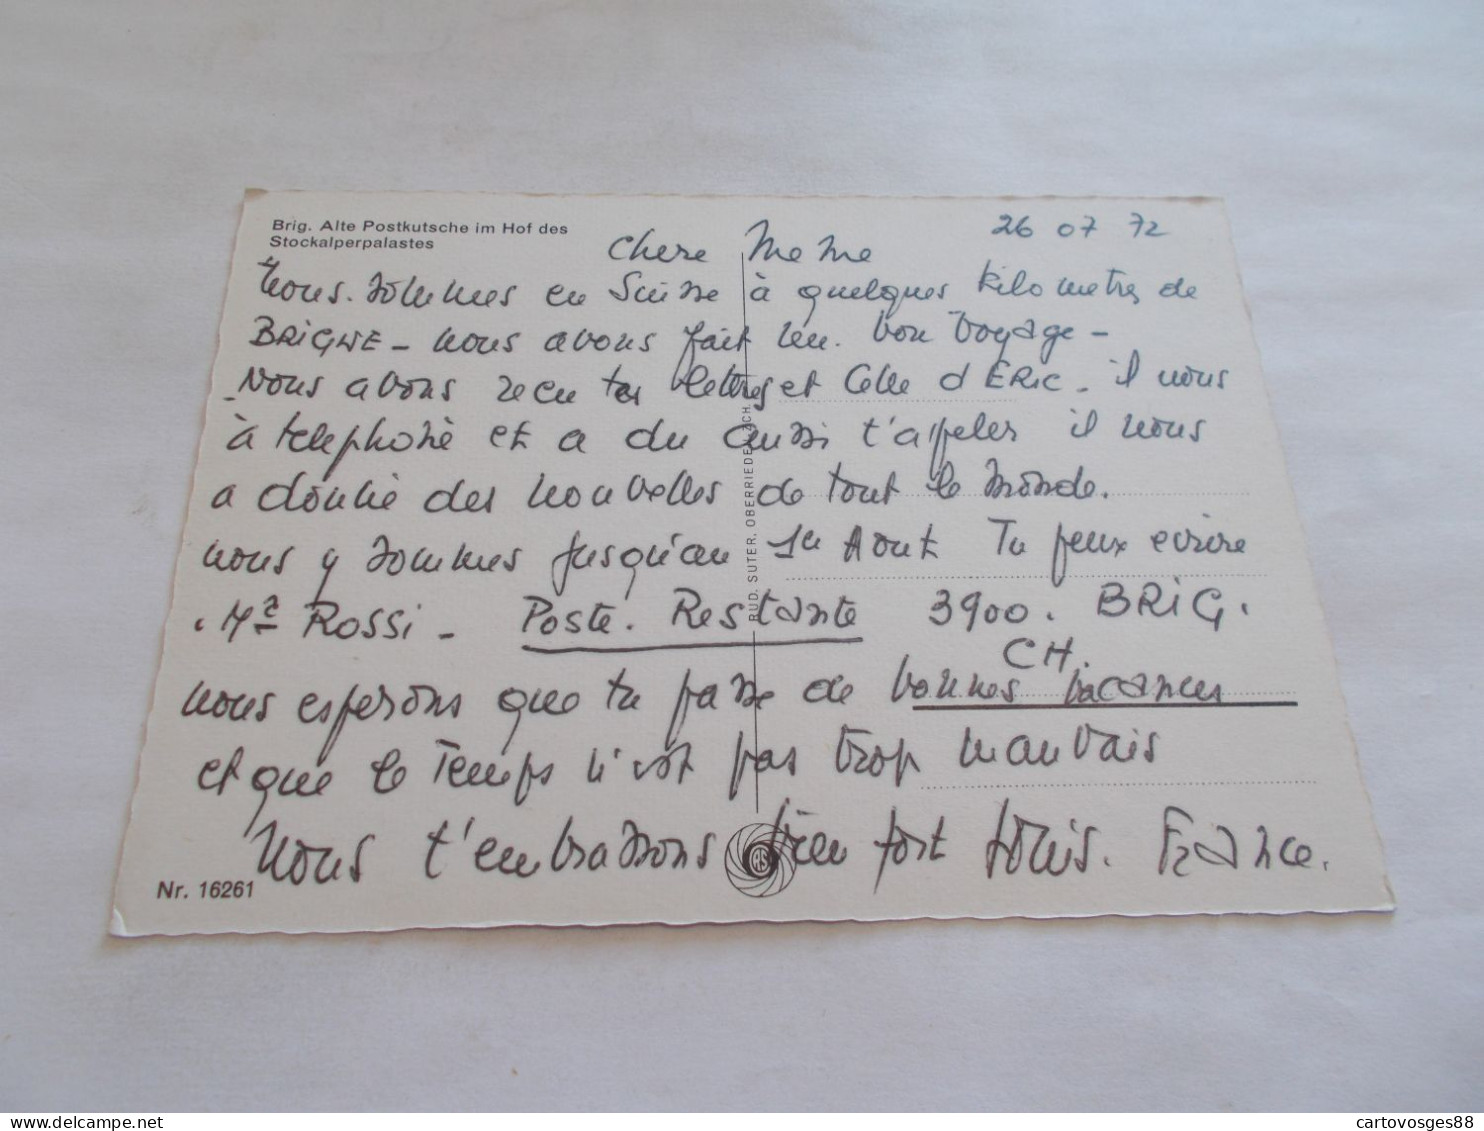 Brig. Alte Postkutsche im Hof des
Stockalperpalastes
26 07 72
Chere MeMe
Nous sommes en Suisse à quelques kilometres de
BRIGUE - nous avons fait un bon voyage -
Nous avons recu tes lettres et celle d'ERIC - il nous
à telephoné et a du aussi t'appeler il nous
a donné des nouvelles de tout le monde.
nous y sommes jusqu'au 1er Aout Tu peux ecrire
. Mr ROSSI - Poste. Restante 3900. BRIG.
CH.
nous esperons que tu passe de bonnes vacances
et que le Temps n'est pas trop mauvais
Nous t'embrassons bien fort France.
RUD. SUTER, OBERRIEDEN-ZCH.
Nr. 16261
cartovosges88